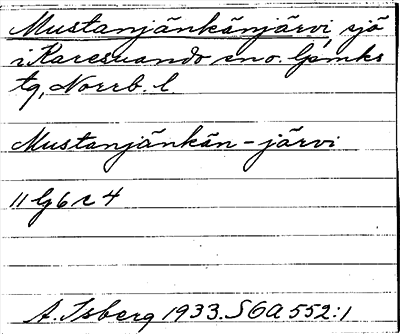 Mustanjänkänjärvi, sjö
i Karesuando sno. Lpmks
tg, Norrb. l.
Mustanjänkän-järvi
11 lg 6 r 4
A. Isberg 1933. SGA 552:1